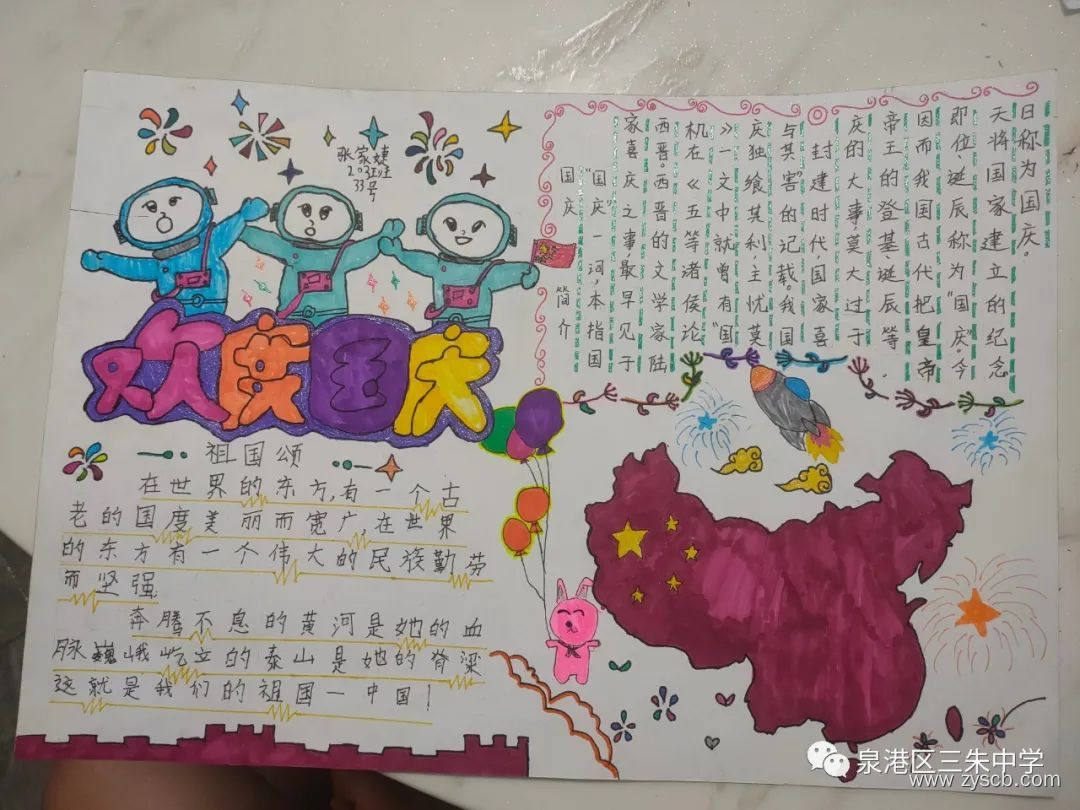 张家婕
203班
33号
欢度国庆
祖国颂
在世界的东方,有一个古
老的国度美丽而宽广,在世界
的东方有一个伟大的民族勤劳
而坚强
奔腾不息的黄河是她的血
脉巍峨屹立的泰山是她的脊梁
这就是我们的祖国一中国!
国庆 简介
“国庆”一词,本指国
家喜庆之事,最早见于
西晋。西晋的文学家陆
机在《五等诸侯论
》一文中就曾有“国
庆独飨其利,主忧莫
与其害”的记载。我国
封建时代,国家喜
庆的大事,莫大过于
帝王的登基、诞辰等。
因而我国古代把皇帝
即位、诞辰称为“国庆”。今
天将国家建立的纪念
日称为国庆。
泉港区三朱中学
www.zyscb.com